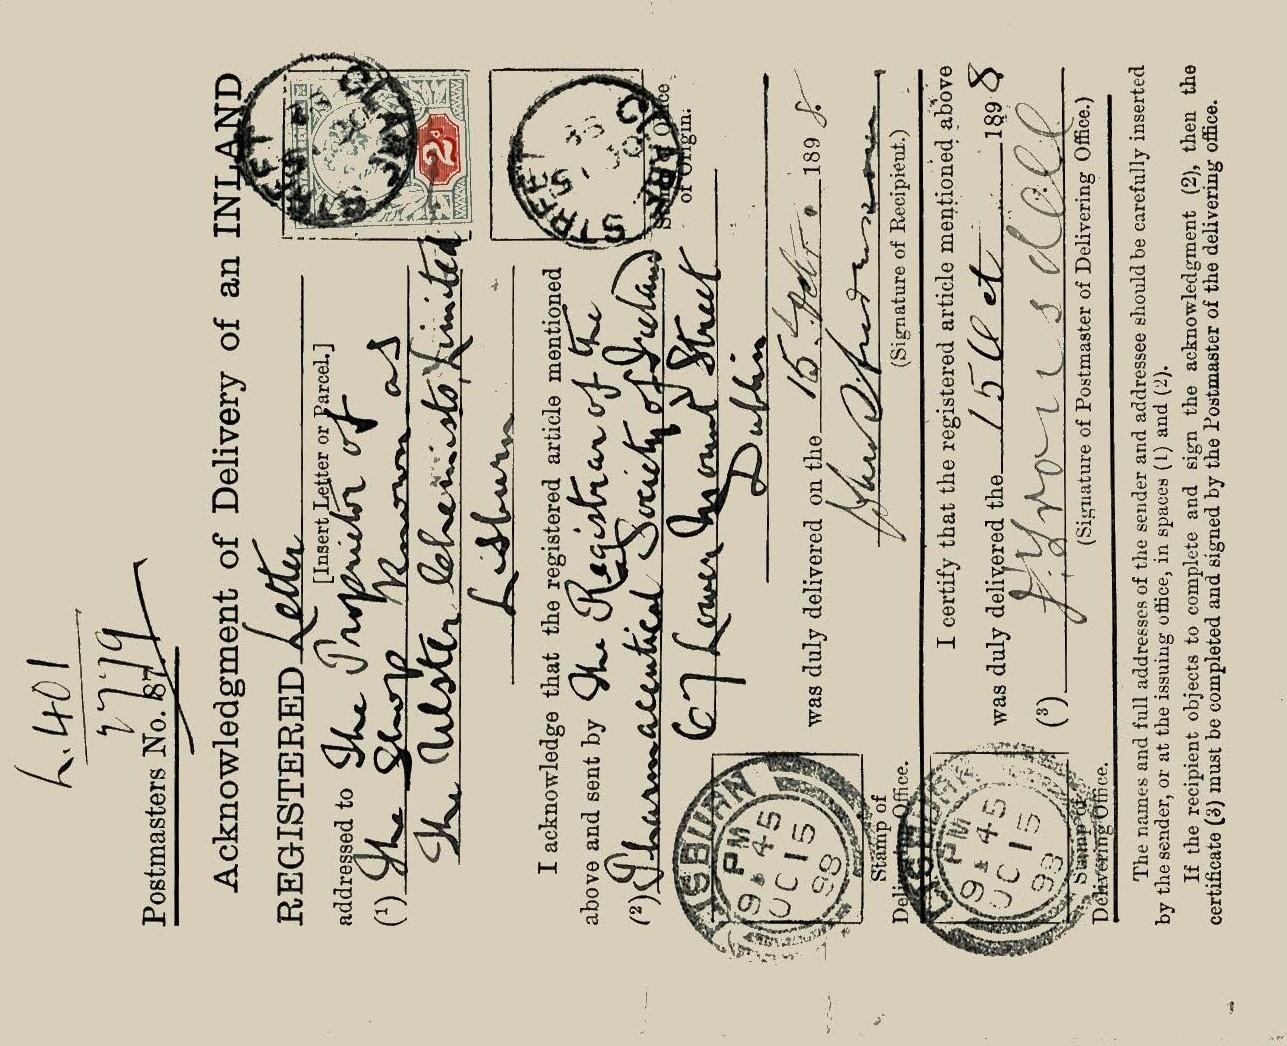 L.401
Postmasters No. 87.
Acknowledgment of Delivery of an INLAND
REGISTERED Letter
[Insert Letter or Parcel.]
addressed to The Proprietor of
(1) The Shop Known as
The Ulster Chemists Limited
Lisburn
2d
STREET
STREET
Stamp Office
of Origin.
I acknowledge that the registered article mentioned
above and sent by The Registrar of the
(2) Pharmaceutical Society of Ireland
67 Lower Mount Street
Dublin
was duly delivered on the 15 Oct. 1898.
(Signature of Recipient.)
LISBURN
PM
9 45
OC 15
98
Stamp of
Delivering Office.
I certify that the registered article mentioned above
was duly delivered the 15 Oct 1898
(3)
(Signature of Postmaster of Delivering Office.)
LISBURN
PM
9 45
OC 15
98
Stamp of
Delivering Office.
The names and full addresses of the sender and addressee should be carefully inserted
by the sender, or at the issuing office, in spaces (1) and (2).
If the recipient objects to complete and sign the acknowledgment (2), then the
certificate (3) must be completed and signed by the Postmaster of the delivering office.